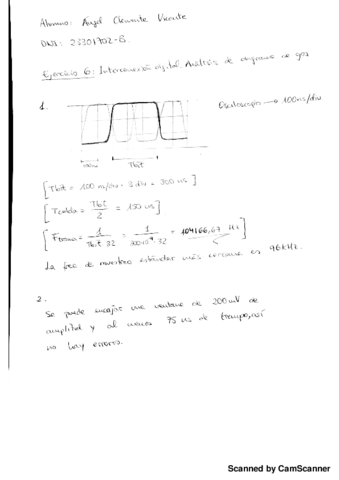 Alumno: Ángel Clemente Vicente
DNI: 23301702-B.
Ejercicio 6: Interconexión digital. Análisis de diagrama de ojos
1.
Osciloscopio → 100 ns/div
Tbit
[Tbit = 100 ns/div · 3 div = 300 ns]
= Tbit / 2 = 150 ns]
= 1 / Tbit·32 = 1 / 300·10⁻⁹·32 = 104166,67 Hz]
La frec de muestreo estándar más cercana es 96 kHz.
2.
Se puede encajar una ventana de 200 mV de
amplitud y al menos 75 ns de tiempo, así
no hay errores.
Scanned by CamScanner